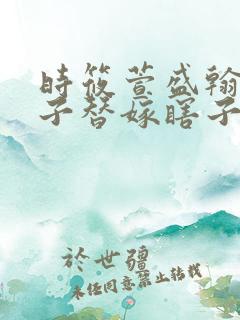 時筱萱盛翰
子替嫁瞎子
於世疆
未经同意禁止转载